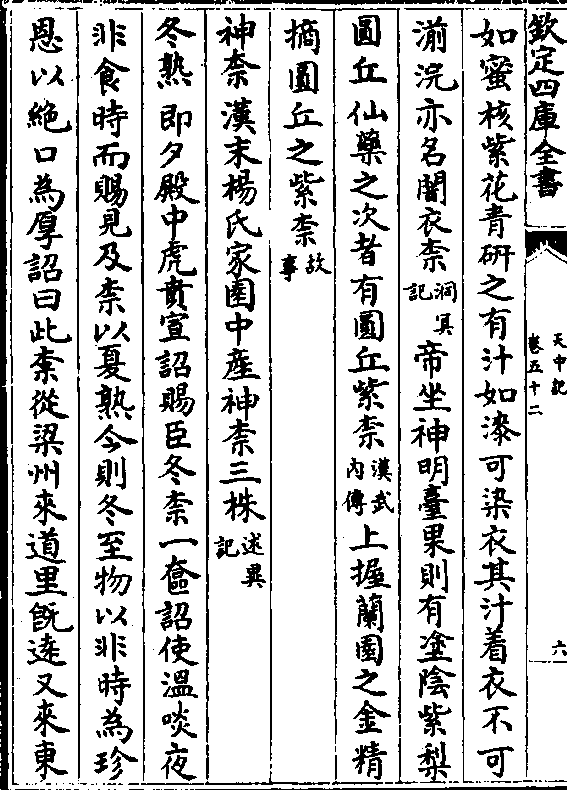 欽定四庫全書
天中記
卷五十二
六
如蜜核紫花青研之有汁如漆可染衣其汁着衣不可
湔浣亦名闇衣柰洞冥記帝坐神明臺果則有塗陰紫梨
圓丘仙藥之次者有圓丘紫柰漢武內傳上握蘭園之金精
摘圓丘之紫柰故事
神柰漢末楊氏家園中産神柰三株述異記
冬熟即夕殿中虎賁宣詔賜臣冬柰一奩詔使溫啖夜
非食時而賜見及柰以夏熟今則冬至物以非時為珍
恩以絶口為厚詔曰此柰從梁州來道里旣逺又來東